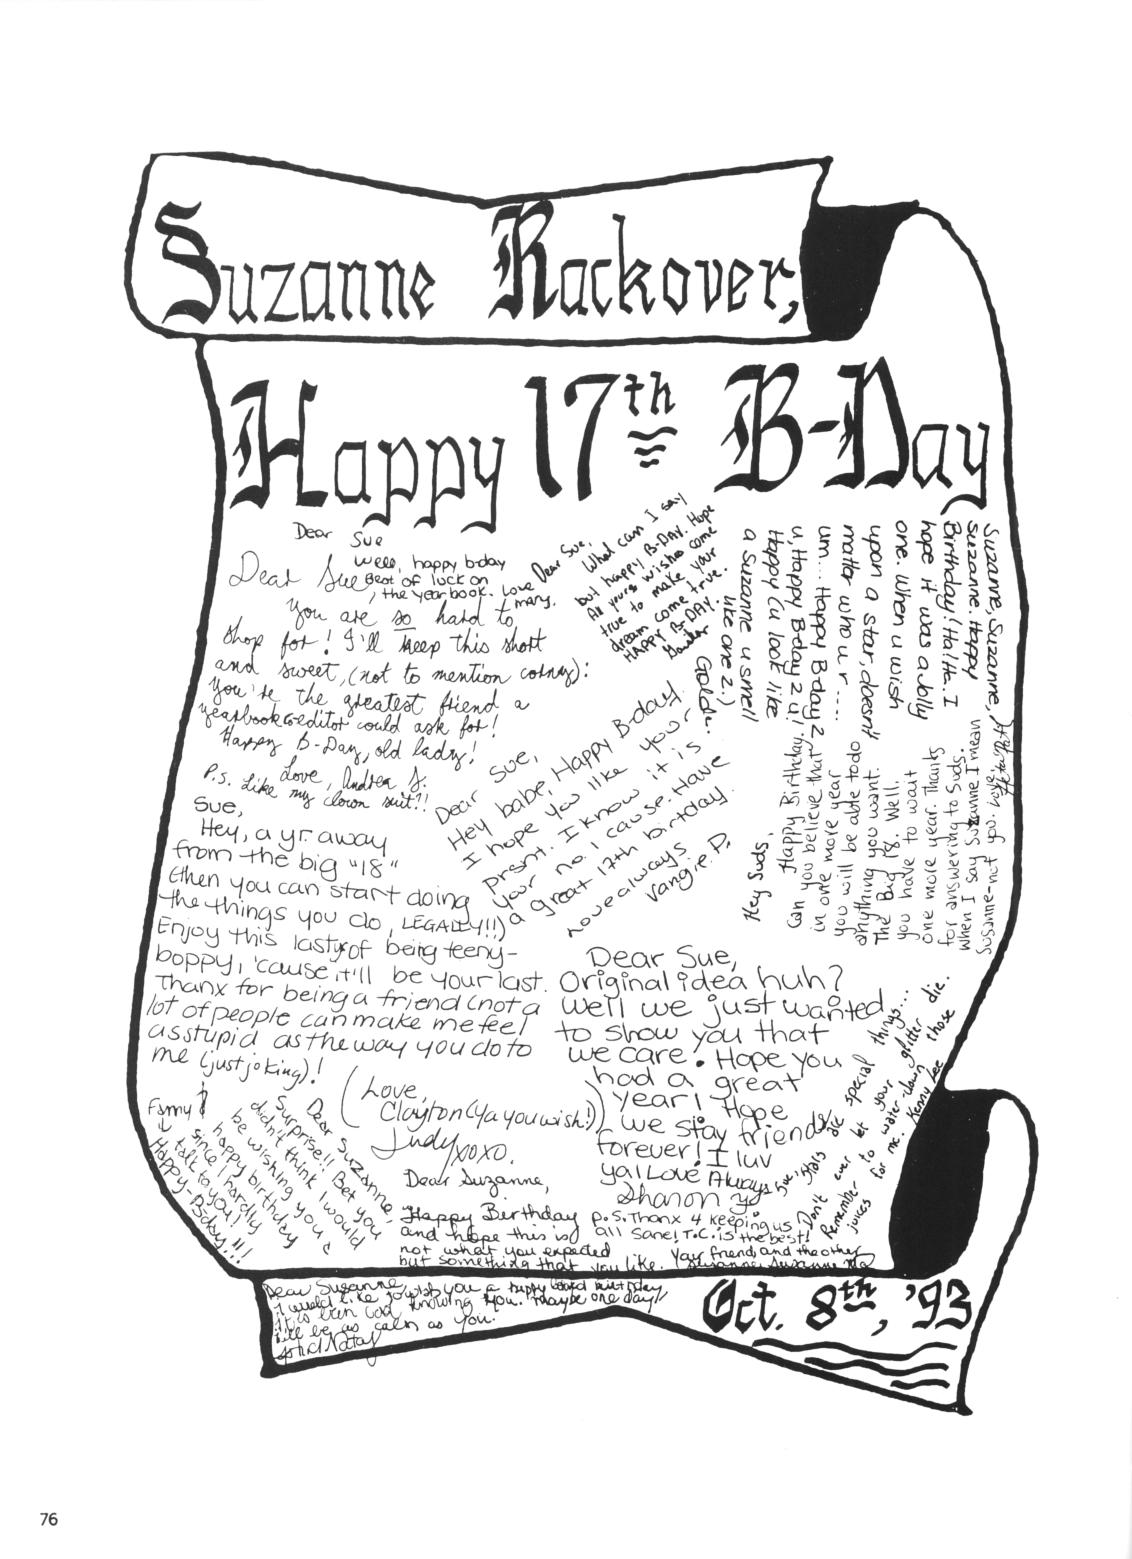 Suzanne Rackover,
Happy 17th B-Day
Dear Sue
Well, happy b-day
Best of luck on
the yearbook. Love
Many.
Dear Sue
You are so hard to
shop for! I'll keep this short
and sweet, (not to mention corny):
You're the greatest friend a
yearbook coeditor could ask for!
Happy B-Day, old lady!
Love, Andrea J.
P.S. Like my clown suit?!
Dear Sue,
What can I say
but happy B-DAY. Hope
All yours wishes come
true to make your
dream come true.
HAPPY B-DAY.
Suzanne, Suzanne,
Suzanne. Happy
Birthday! Ha Ha. I
hope it was a jolly
one. When u wish
upon a star, doesn't
matter who u r.....
um... Happy B-day 2
u, Happy B-day 2 u!
Happy Cu look like
a Suzanne u smell
like one 2.)
Goldie.
Dear Sue,
Hey babe, Happy B-day.
I hope you like your
prsnt. I know it is
your no. 1 cause. Have
a great 17th birthday.
Love always
Vangie. P.
Hey Suds,
Happy Birthday!
Can you believe that
in one more year
you will be able to do
anything you want.
The Bug 18. Well.
you have to wait
one more year. Thanks
for answering to Suds.
When I say Suzanne I mean
Susanne-not you. Love
Sue,
Hey, a yr. away
from the big "18"
(then you can start doing
the things you do, LEGALLY!!)
Enjoy this last yr of being teeny-
boppy, 'cause it'll be your last.
Thanx for being a friend (not a
lot of people can make me feel
as stupid as the way you do to
me (just joking)!
(Love,
Clayton (ya you wish!))
Judy xoxo.
Dear Sue,
Original idea huh?
Well we just wanted
to show you that
we care! Hope you
had a great
year! Hope
we stay friends
forever! I luv
ya! Love Always
Sharon
P.S. Thanx 4 keeping us
all sane! T.C. is the best!
Sue, stars are special things...
Don't ever let your glitter die.
Remember to water-down those
juices for me. Kenny Lee
Dear Suzanne,
Surprise!! Bet you
didn't think I would
be wishing you a
happy birthday
since I hardly
talk to you!
Happy-B-day!!!
Dear Suzanne,
Happy Birthday
and hope this is
not what you expected
but something that you like.
Your friend, and the other
Suzanne,
Dear Suzanne,
I would like to wish you a happy birthday
It's been cool knowing you. Maybe one day
I'll be as calm as you.
Oct. 8th, '93
76